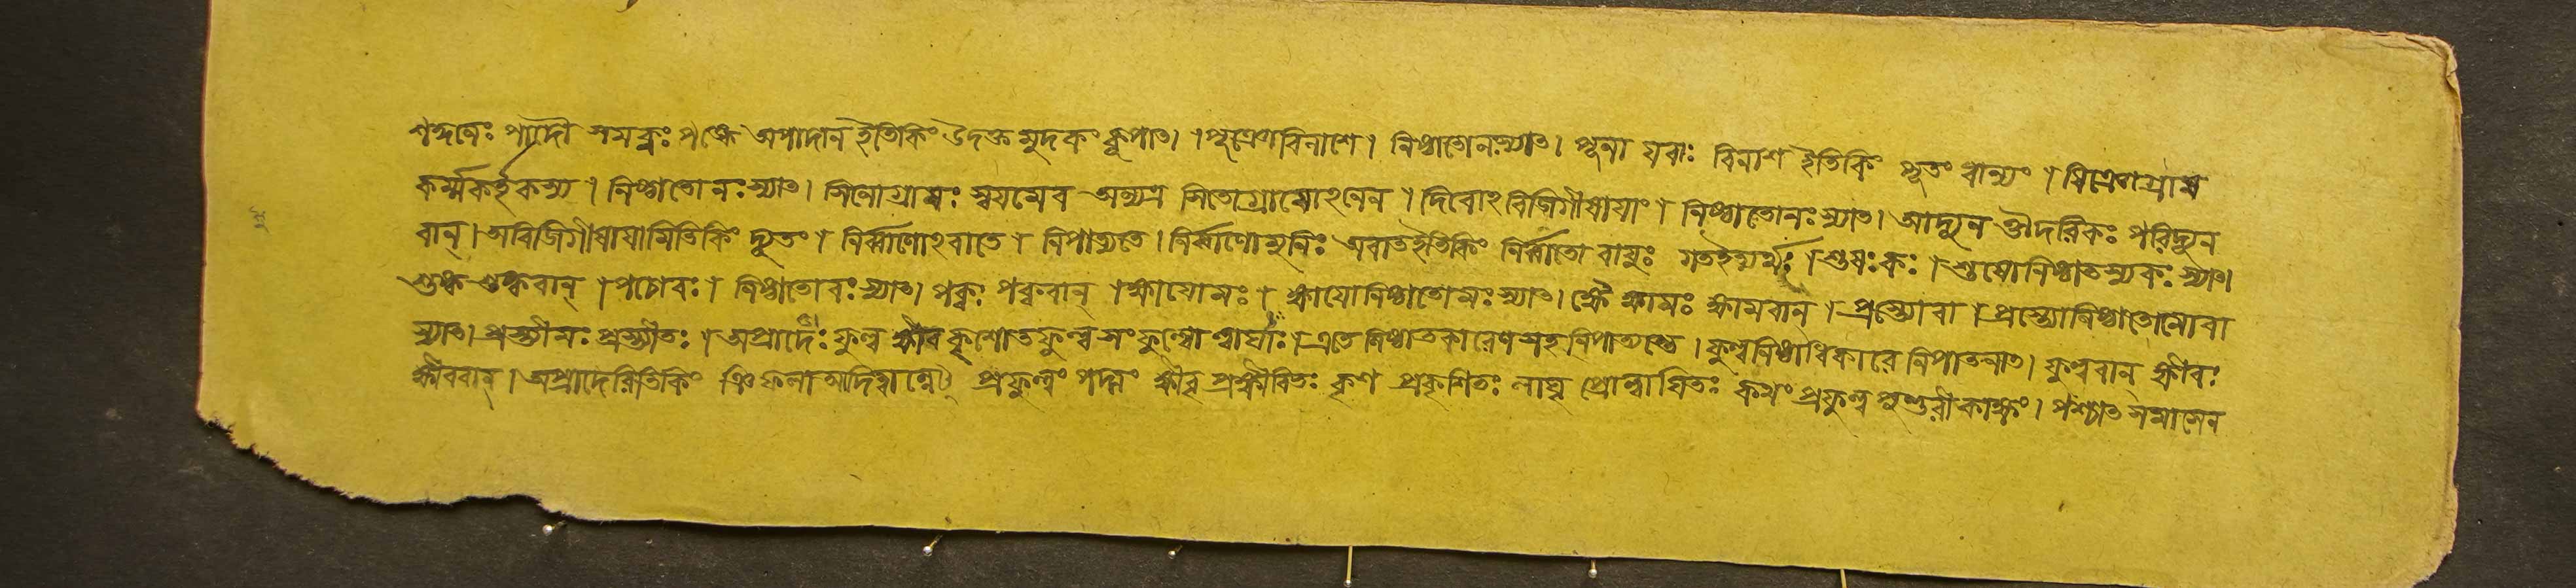 শক্নেঃ পাদৌ সমক্নঃ পক্ষে অপাদান ইতিকিং উদক্ত মুদকং কূপাৎ। পূঞোবিনাশে। নিষ্ঠাতোনঃস্যাৎ। পূনা যবাঃ বিনাশ ইতিকিং পূতং ধান্যং। ষিঞোগ্রাস
কর্ম্মকর্তৃকস্য। নিষ্ঠাতোনঃস্যাৎ। সিনোগ্রাসঃ স্বয়মেব অন্যত্র সিতোগ্রাসোঽনেন। দিবোঽবিজিগীষায়াং। নিষ্ঠাতোনঃস্যাৎ। আদ্যূন ঔদরিকঃ পরিদ্যূন
বান্। অবিজিগীষায়ামিতিকিং দ্যূতং। নির্ব্বাণোঽবাতে। নিপাত্যতে। নির্ব্বাণোমুনিঃ অবাতইতিকিং নির্ব্বাতো বায়ুঃ গতইত্যর্থঃ। শুষঃকঃ। শুষোনিষ্ঠাতস্যকঃস্যাৎ।
শুষ্কঃ শুষ্কবান্। পচোবঃ। নিষ্ঠাতোবঃস্যাৎ। পক্বঃ পক্ববান্। ক্ষায়োমঃ। ক্ষায়োনিষ্ঠাতোমঃস্যাৎ। ক্ষৈ ক্ষামঃ ক্ষামবান্। প্রস্ত্যোবা। প্রস্ত্যোনিষ্ঠাতোমোবা
স্যাৎ। প্রস্তীমঃ প্রস্তীতঃ। অপ্রাদেঃ ফুল্ল ক্ষীব কৃশোতফুল্ল সংফুল্লো ল্লাঘাঃ। এতে নিষ্ঠাতকারেণসহ নিপাত্যন্তে। ফুল্লনিষ্ঠাধিকারে নিপাতনাত। ফুল্লবান্ ক্ষীবঃ
ক্ষীববান্। অপ্রাদেরিতিকিং ঞিফলা প্রফুল্লং পদ্মং ক্ষীবৃ প্রক্ষীবিতঃ কৃশ প্রকৃশিতঃ লাঘৃ প্রোল্লাঘিতঃ কথং প্রফুল্ল পুণ্ডরীকাক্ষং। পশ্চাত সমাসেন